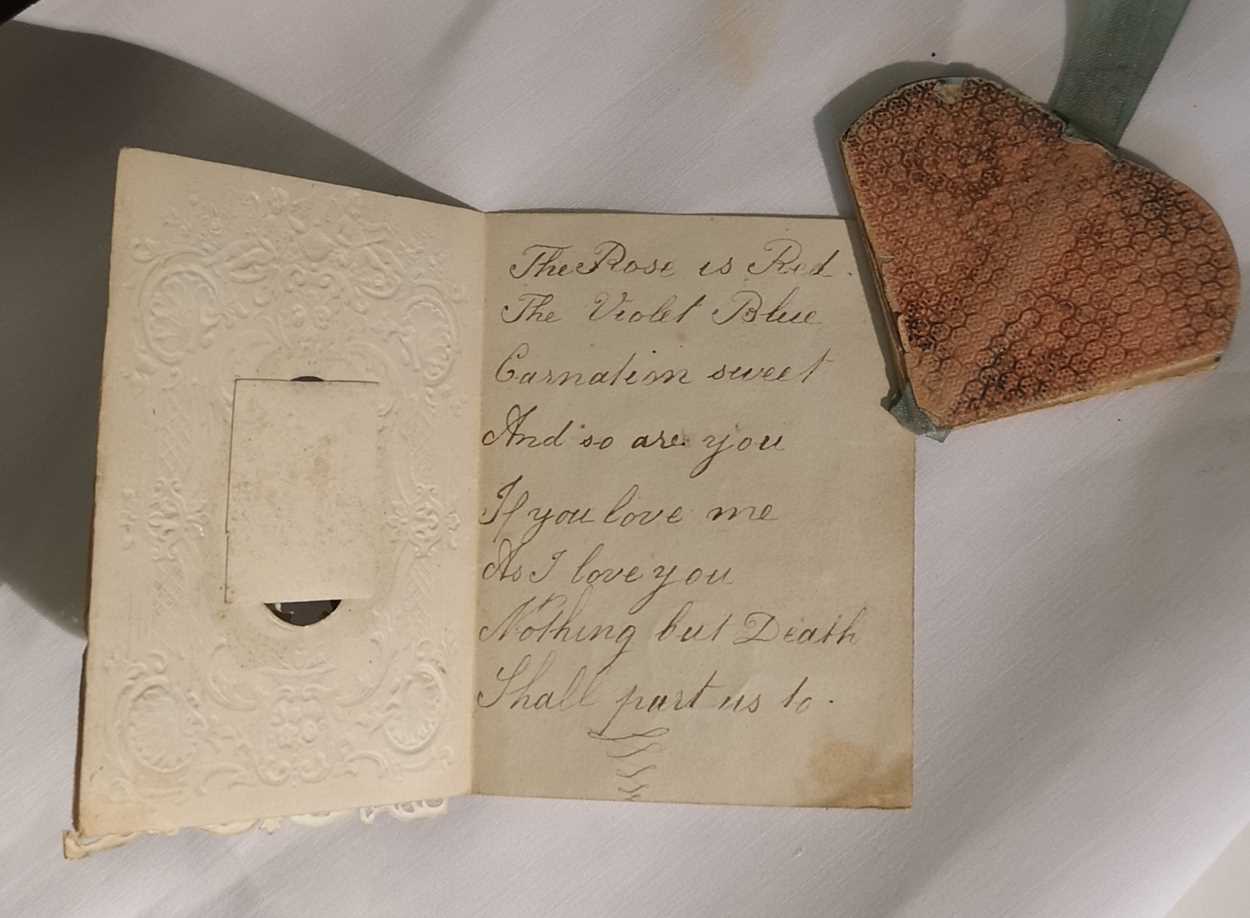 The Rose is Red.
The Violet Blue
Carnation sweet
And so are you
If you love me
As I love you
Nothing but Death
Shall part us to.